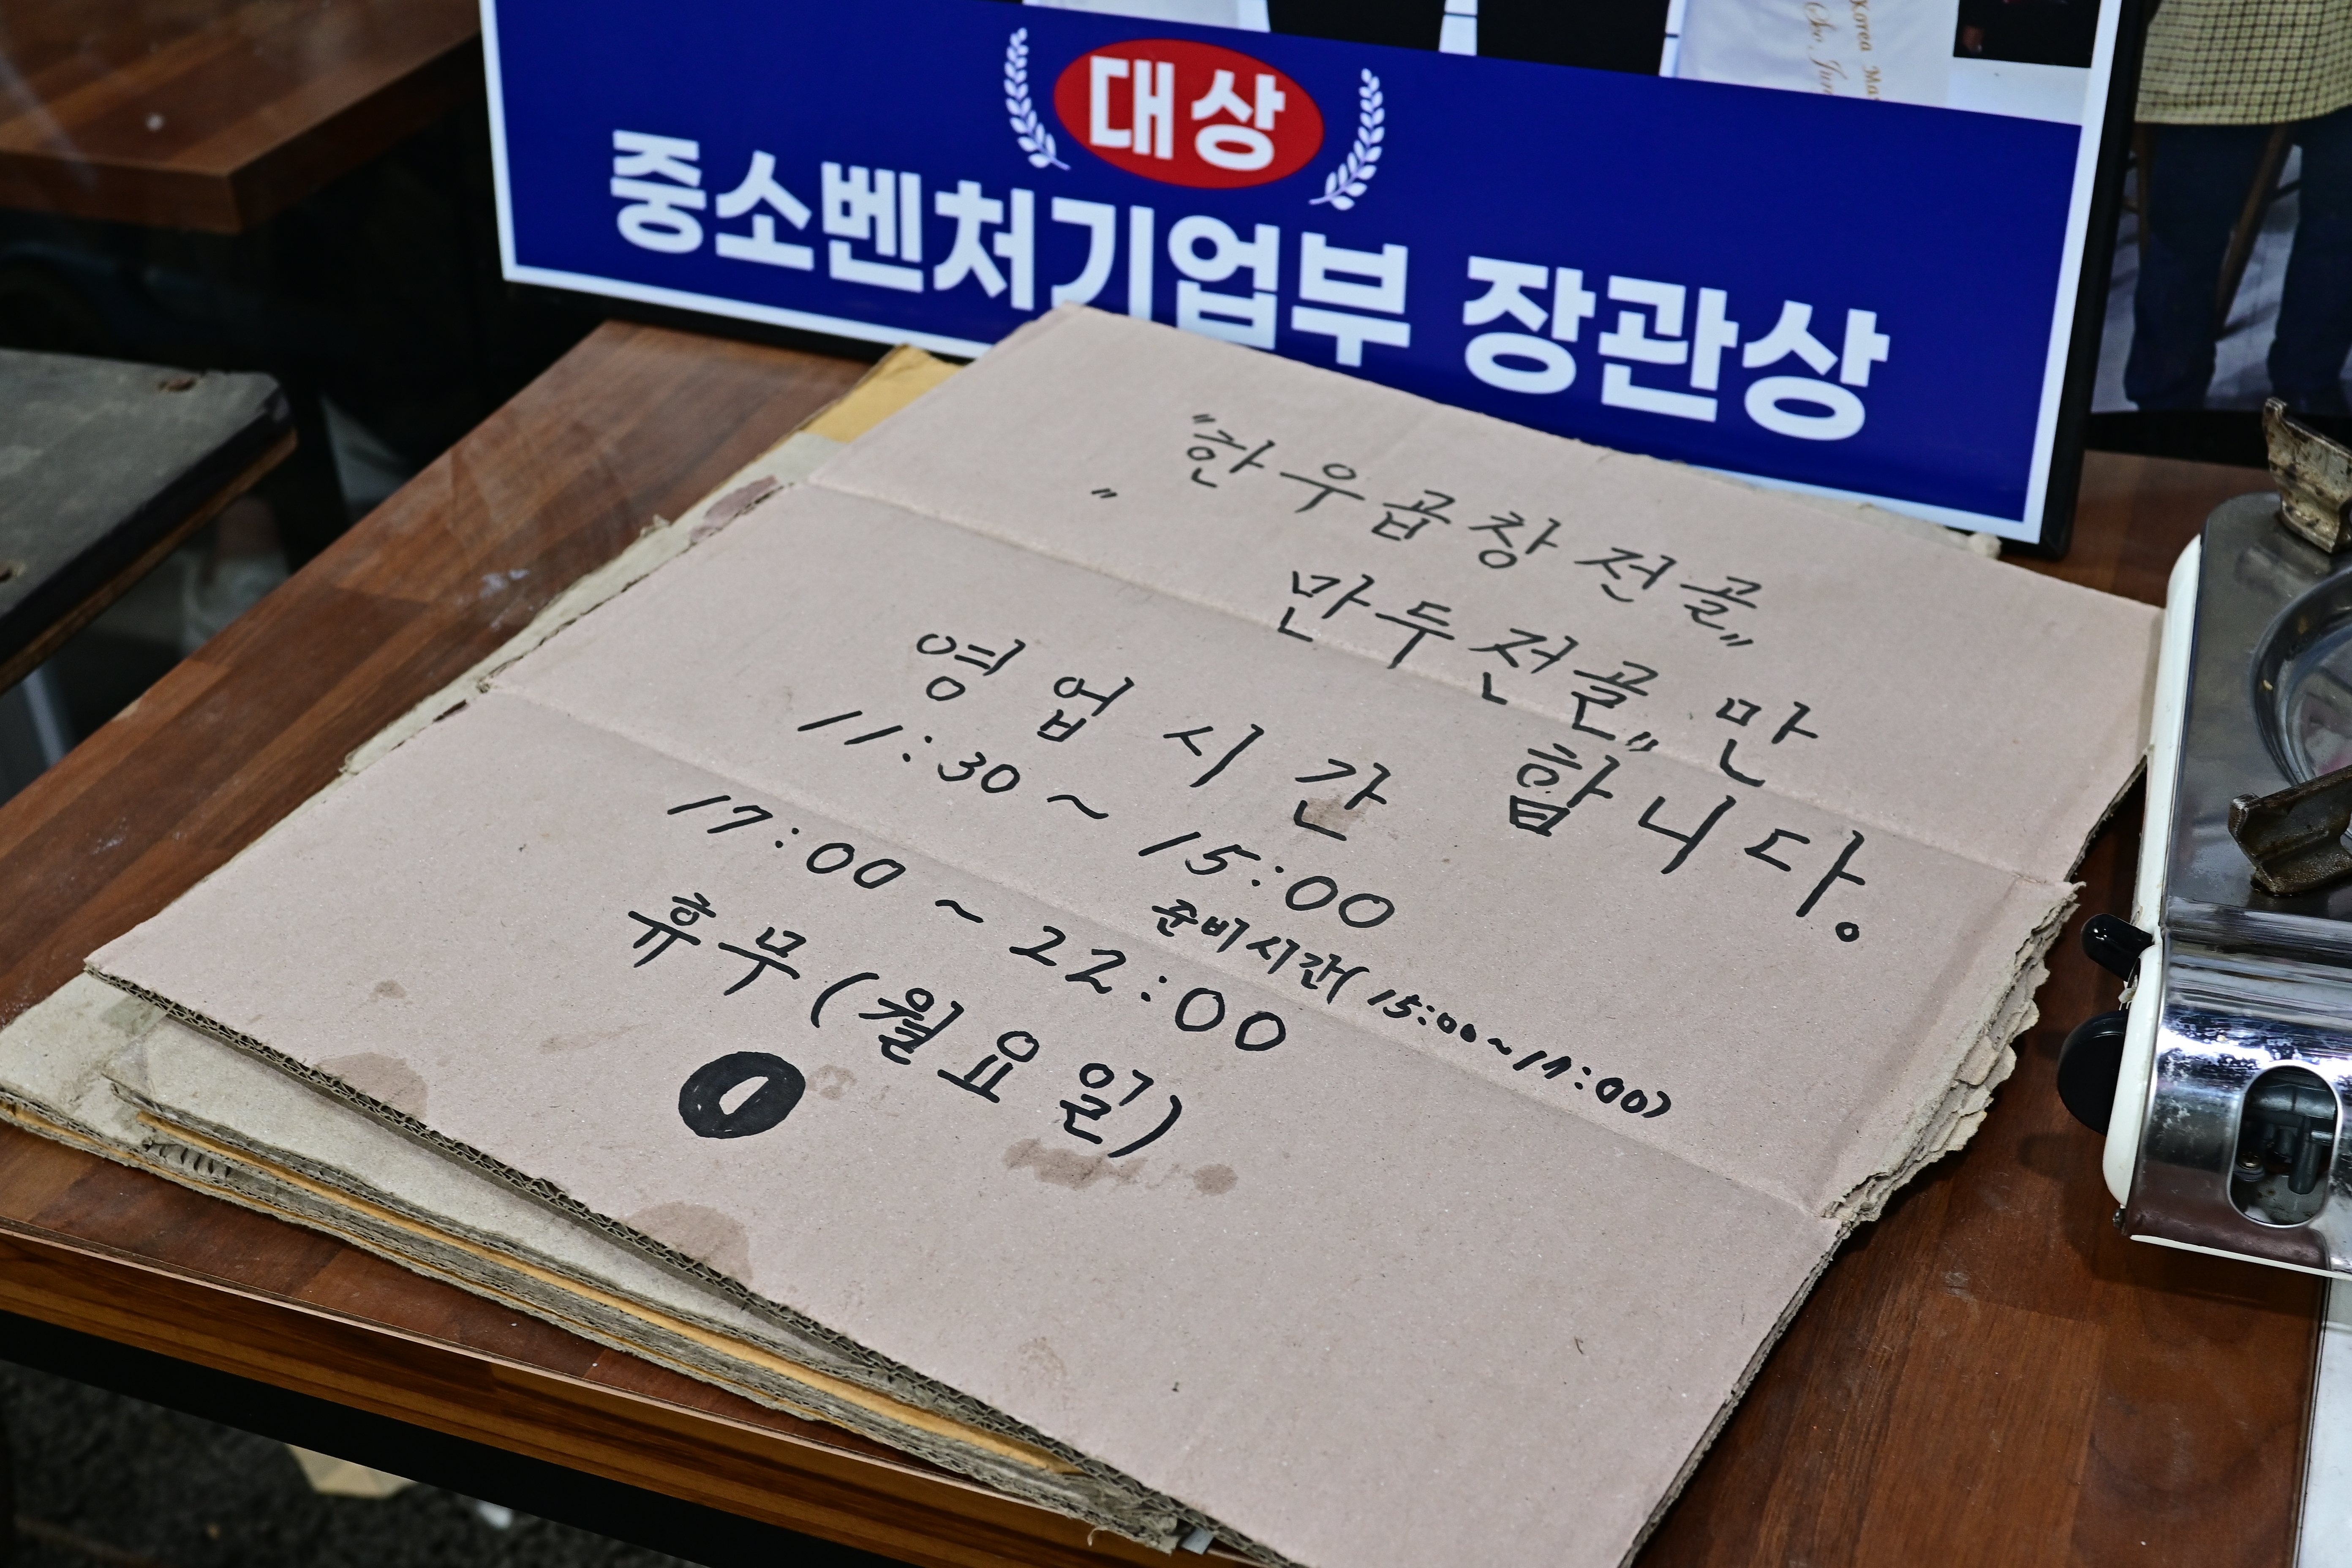 Korea
대상
중소벤처기업부 장관상
"한우곱창전골"
" 만두전골"만
합니다.
영업시간
11:30 ~ 15:00
준비시간(15:00~17:00)
17:00 ~ 22:00
휴무(월요일)